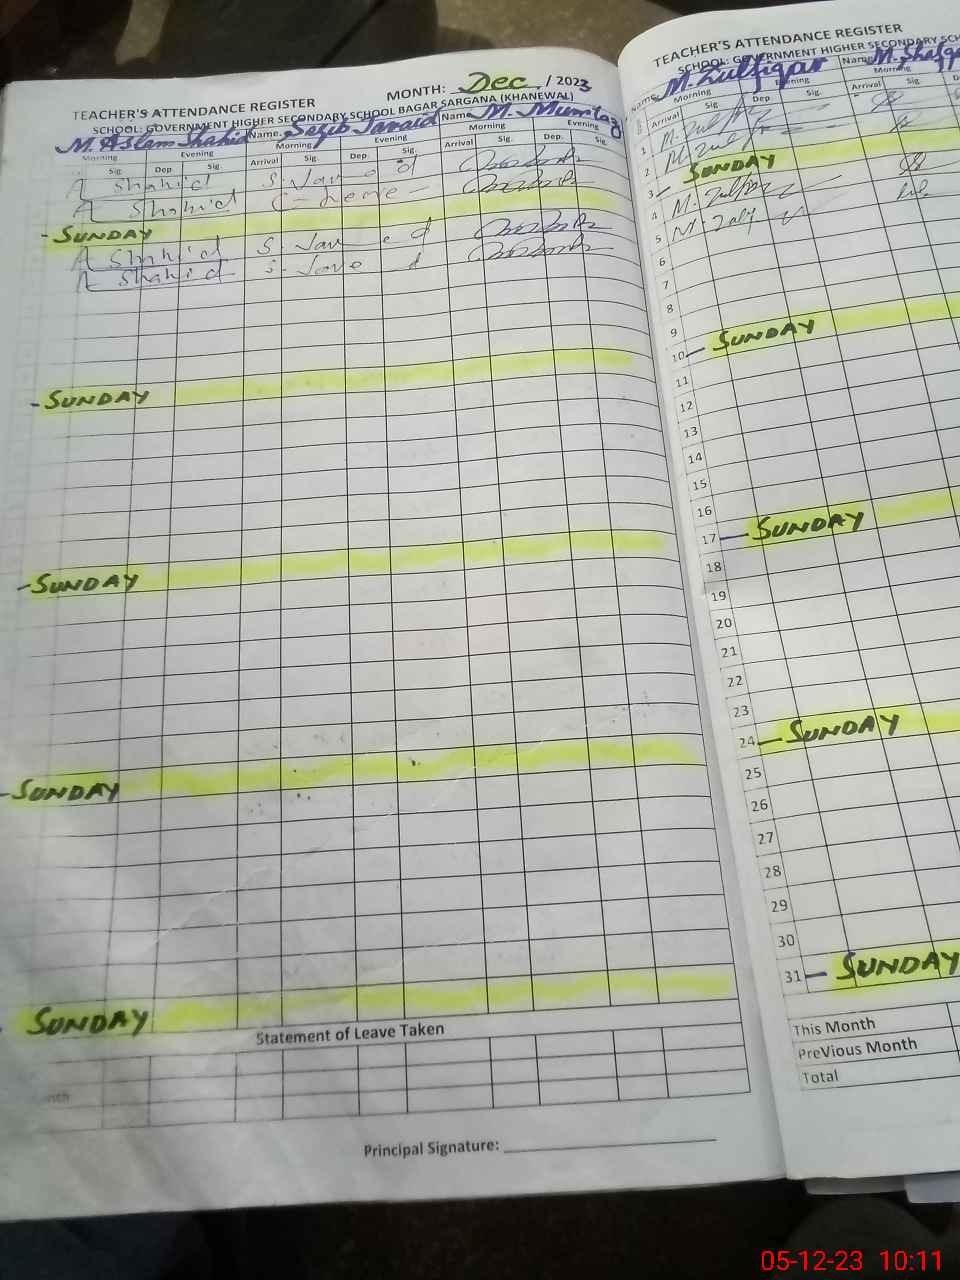 TEACHER'S ATTENDANCE REGISTER MONTH: Dec / 2023
SCHOOL: GOVERNMENT HIGHER SECONDARY SCHOOL BAGAR SARGANA (KHANEWAL)
M. Aslam Shahid Name. Javaid Name M. Mumtaz
Morning Evening Morning Evening Morning Evening
Sig. Dep Sig. Arrival Sig. Dep Sig. Arrival Sig. Dep. Sig.
A Shahid S. Javed
A Shahid
- SUNDAY
A Shahid S. Javed
A Shahid S. Javed
- SUNDAY
- SUNDAY
- SUNDAY
SUNDAY
Statement of Leave Taken
Principal Signature:
TEACHER'S ATTENDANCE REGISTER
SCHOOL: GOVERNMENT HIGHER SECONDARY SCH
Name M. Zulfiqar Name M. Shafq
Morning Evening Morning
Arrival Sig. Dep Sig. Arrival Sig. D
1 M. Zulfiqar
2 M. Zulfiqar
3 - SUNDAY
4 M. Zulfiqar
5
6
7
8
9
10 - SUNDAY
11
12
13
14
15
16
17 - SUNDAY
18
19
20
21
22
23
24 - SUNDAY
25
26
27
28
29
30
31 - SUNDAY
This Month
PreVious Month
Total
05-12-23 10:11